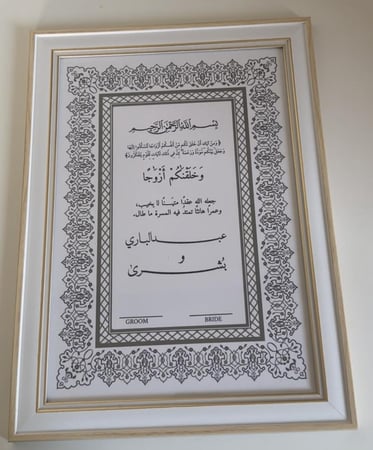 بِسْمِ اللَّهِ الرَّحْمَٰنِ الرَّحِيمِ
﴿ وَمِنْ آيَاتِهِ أَنْ خَلَقَ لَكُم مِّنْ أَنفُسِكُمْ أَزْوَاجًا لِّتَسْكُنُوا إِلَيْهَا
وَجَعَلَ بَيْنَكُم مَّوَدَّةً وَرَحْمَةً إِنَّ فِي ذَٰلِكَ لَآيَاتٍ لِّقَوْمٍ يَتَفَكَّرُونَ ﴾
وَخَلَقْنَاكُمْ أَزْوَاجًا
جعله الله عقدًا متينًا لا يخيب،
وعمرًا هانئًا تمتد فيه المسرة ما طال.
عبدالباري
و
بُشرىٰ
GROOM BRIDE